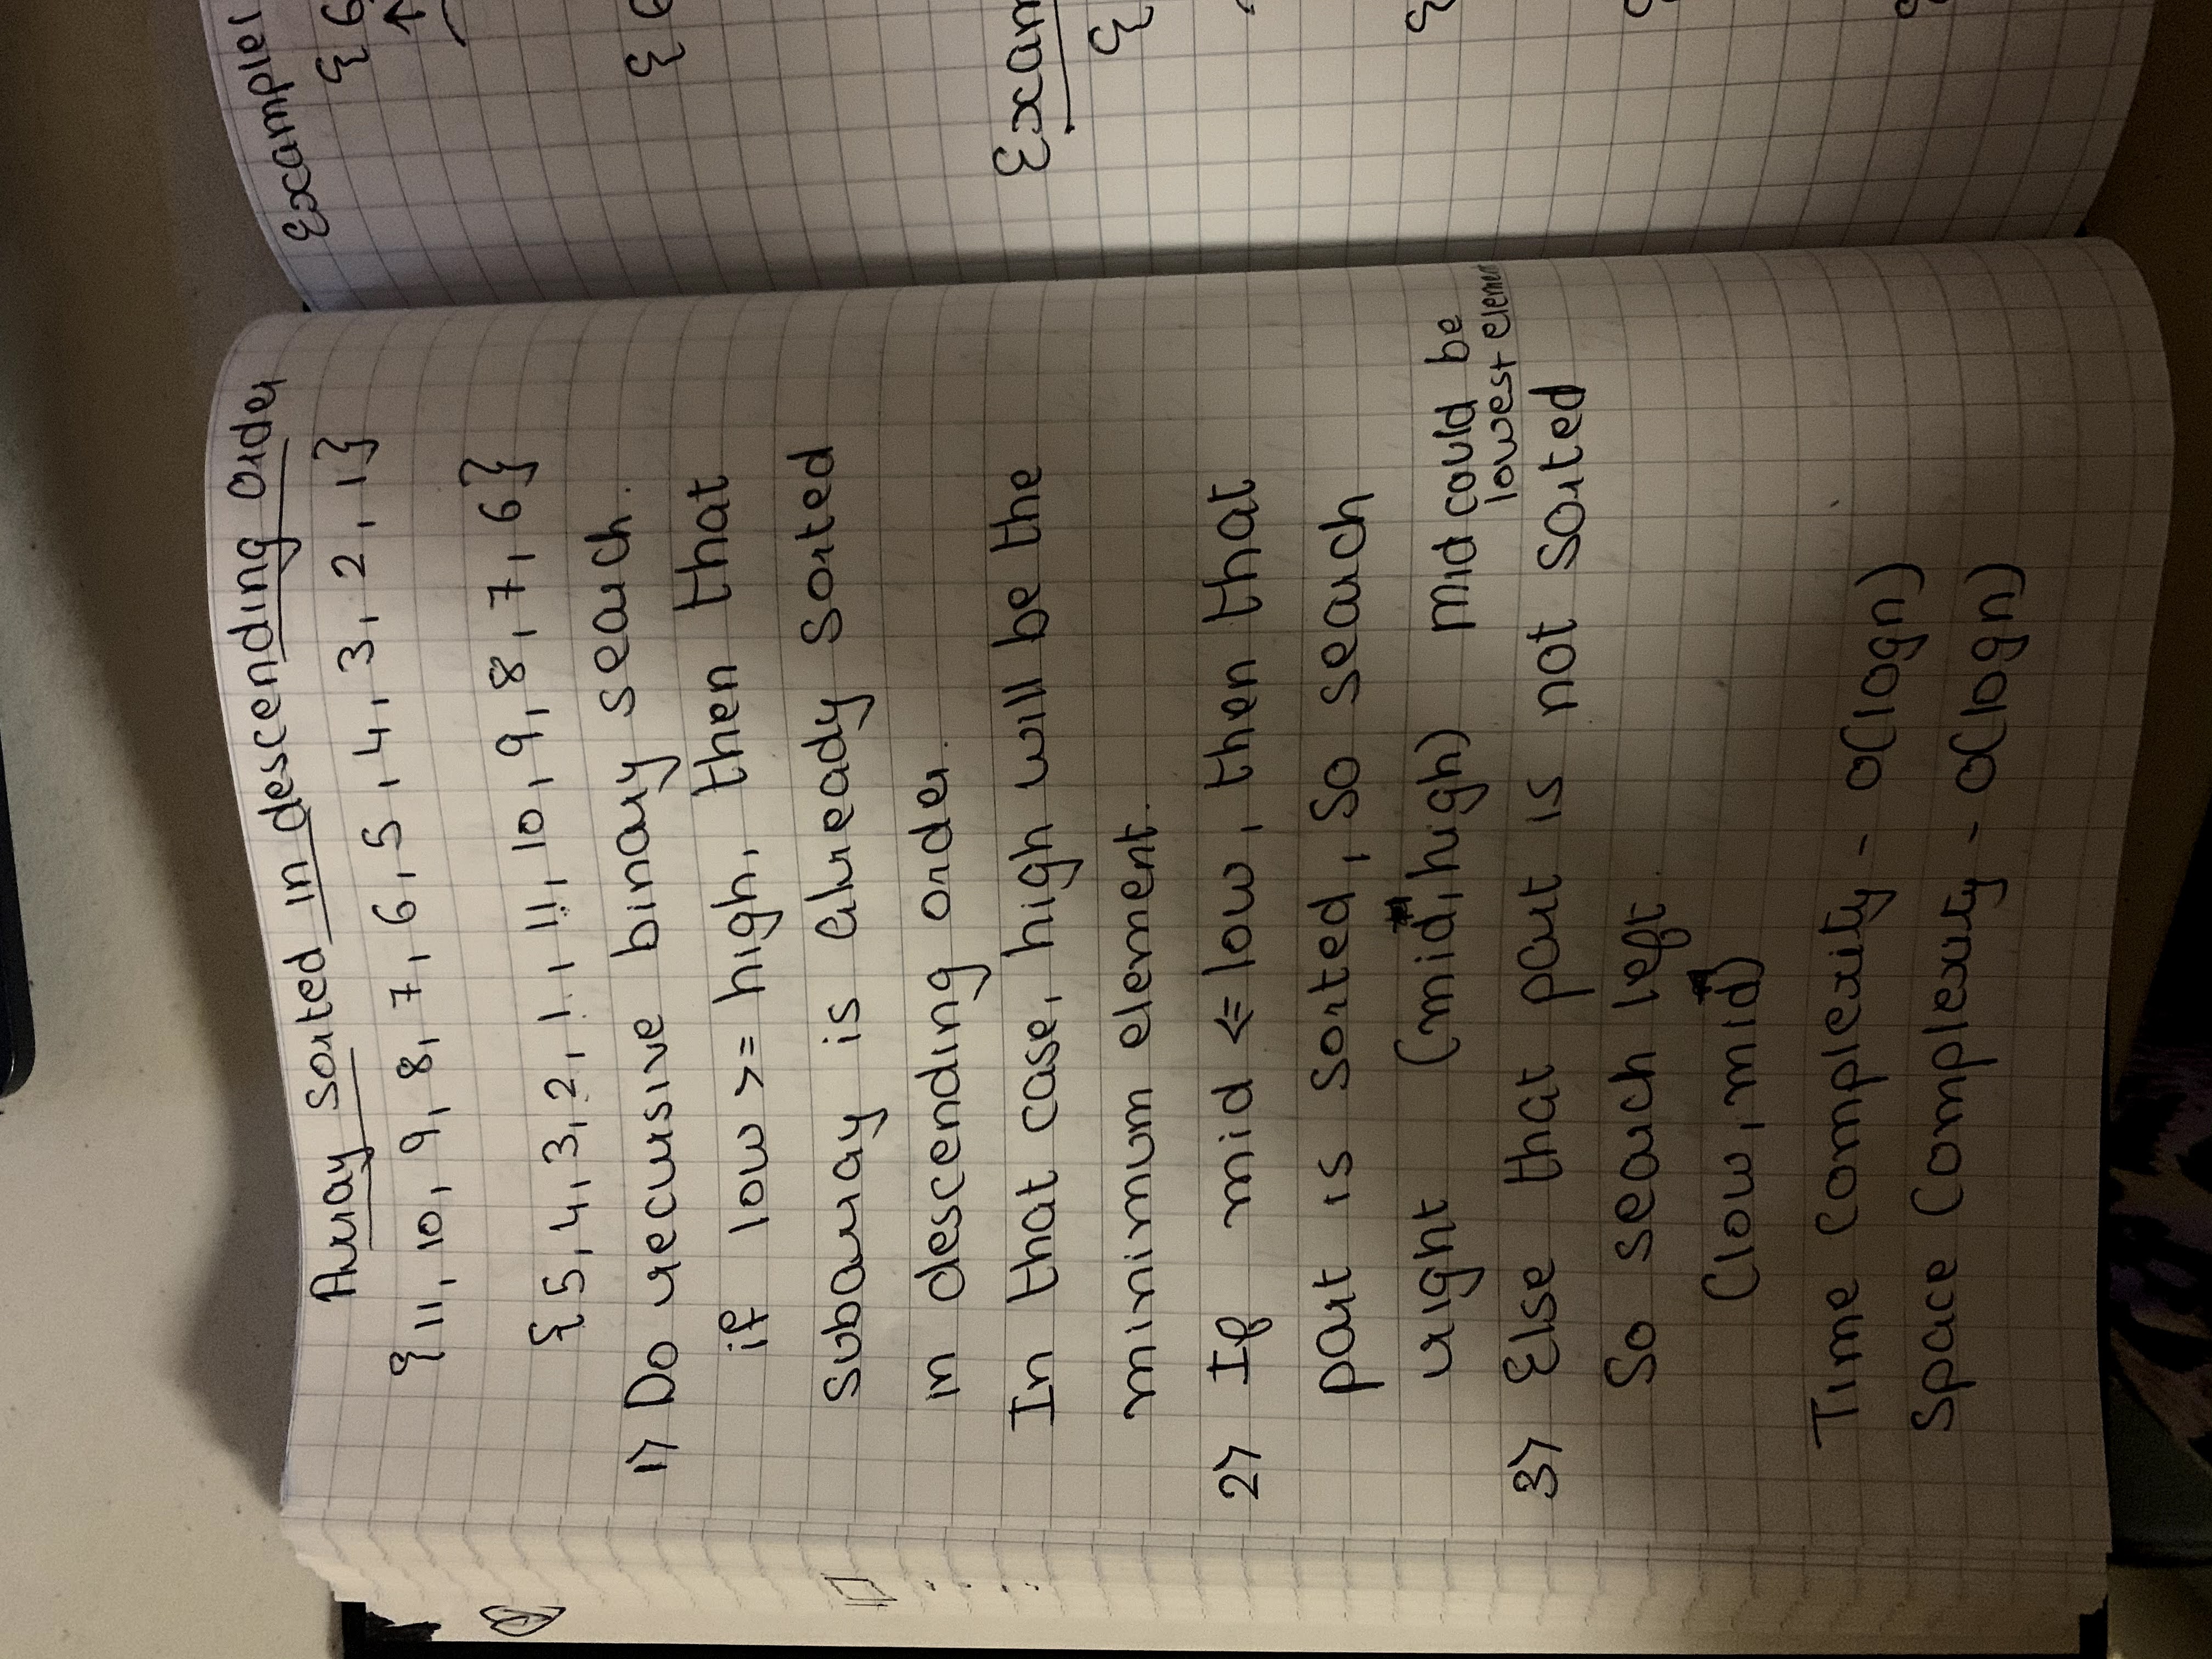 Array sorted in descending order
{11, 10, 9, 8, 7, 6, 5, 4, 3, 2, 1}
{5, 4, 3, 2, 1, 11, 10, 9, 8, 7, 6}
1) Do recursive binary search.
if low >= high, then that
subarray is already sorted
in descending order.
In that case, high will be the
minimum element.
2) If mid <= low, then that
part is sorted, so search
right (mid, high) mid could be
lowest element
3) Else that part is not sorted
So search left.
(low, mid)
Time complexity - O(logn)
Space complexity - O(logn)
Example1
{6
{6
Exam
{